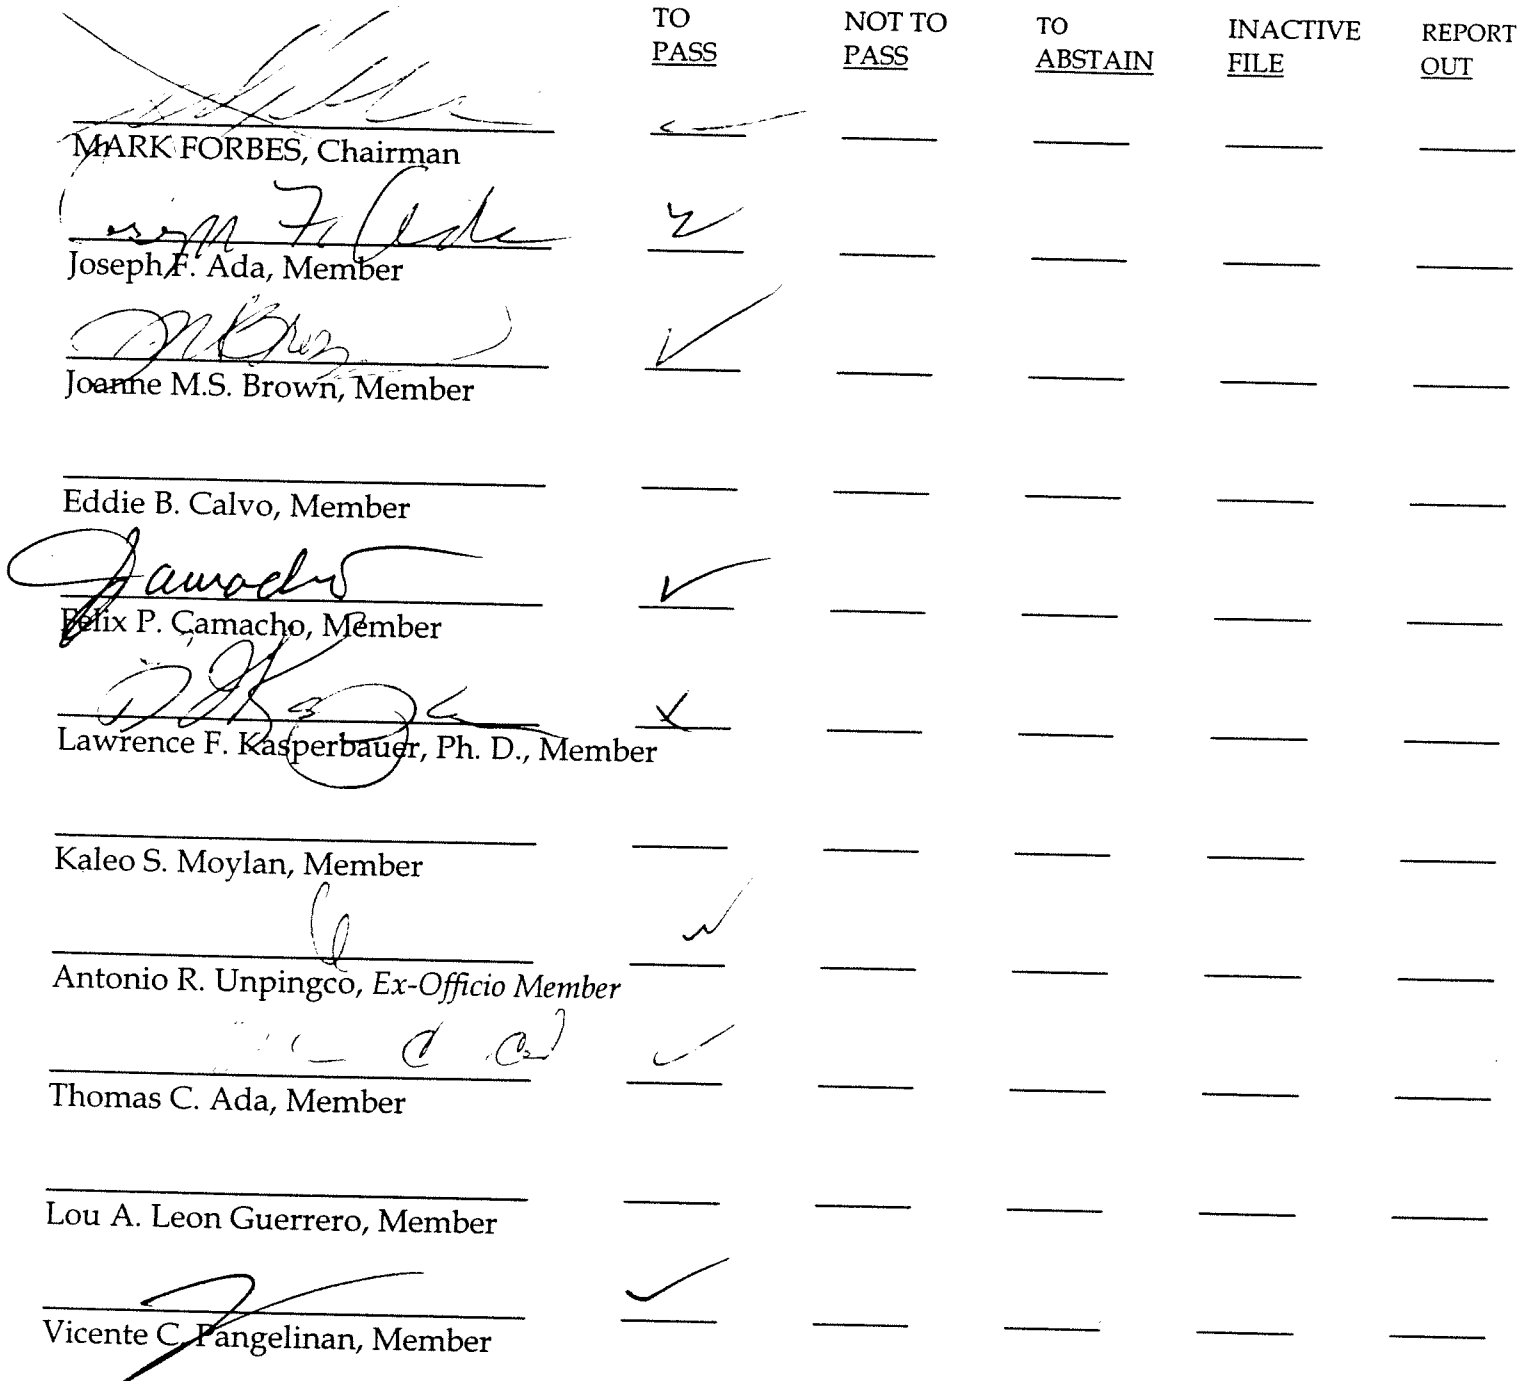 TO NOT TO TO INACTIVE REPORT
PASS PASS ABSTAIN FILE OUT
MARK FORBES, Chairman
Joseph F. Ada
Joseph F. Ada, Member
Joanne M.S. Brown, Member
Eddie B. Calvo, Member
Camacho
Felix P. Camacho, Member
Lawrence F. Kasperbauer, Ph. D., Member
Kaleo S. Moylan, Member
Antonio R. Unpingco, Ex-Officio Member
Thomas C. Ada, Member
Lou A. Leon Guerrero, Member
Vicente C. Pangelinan, Member